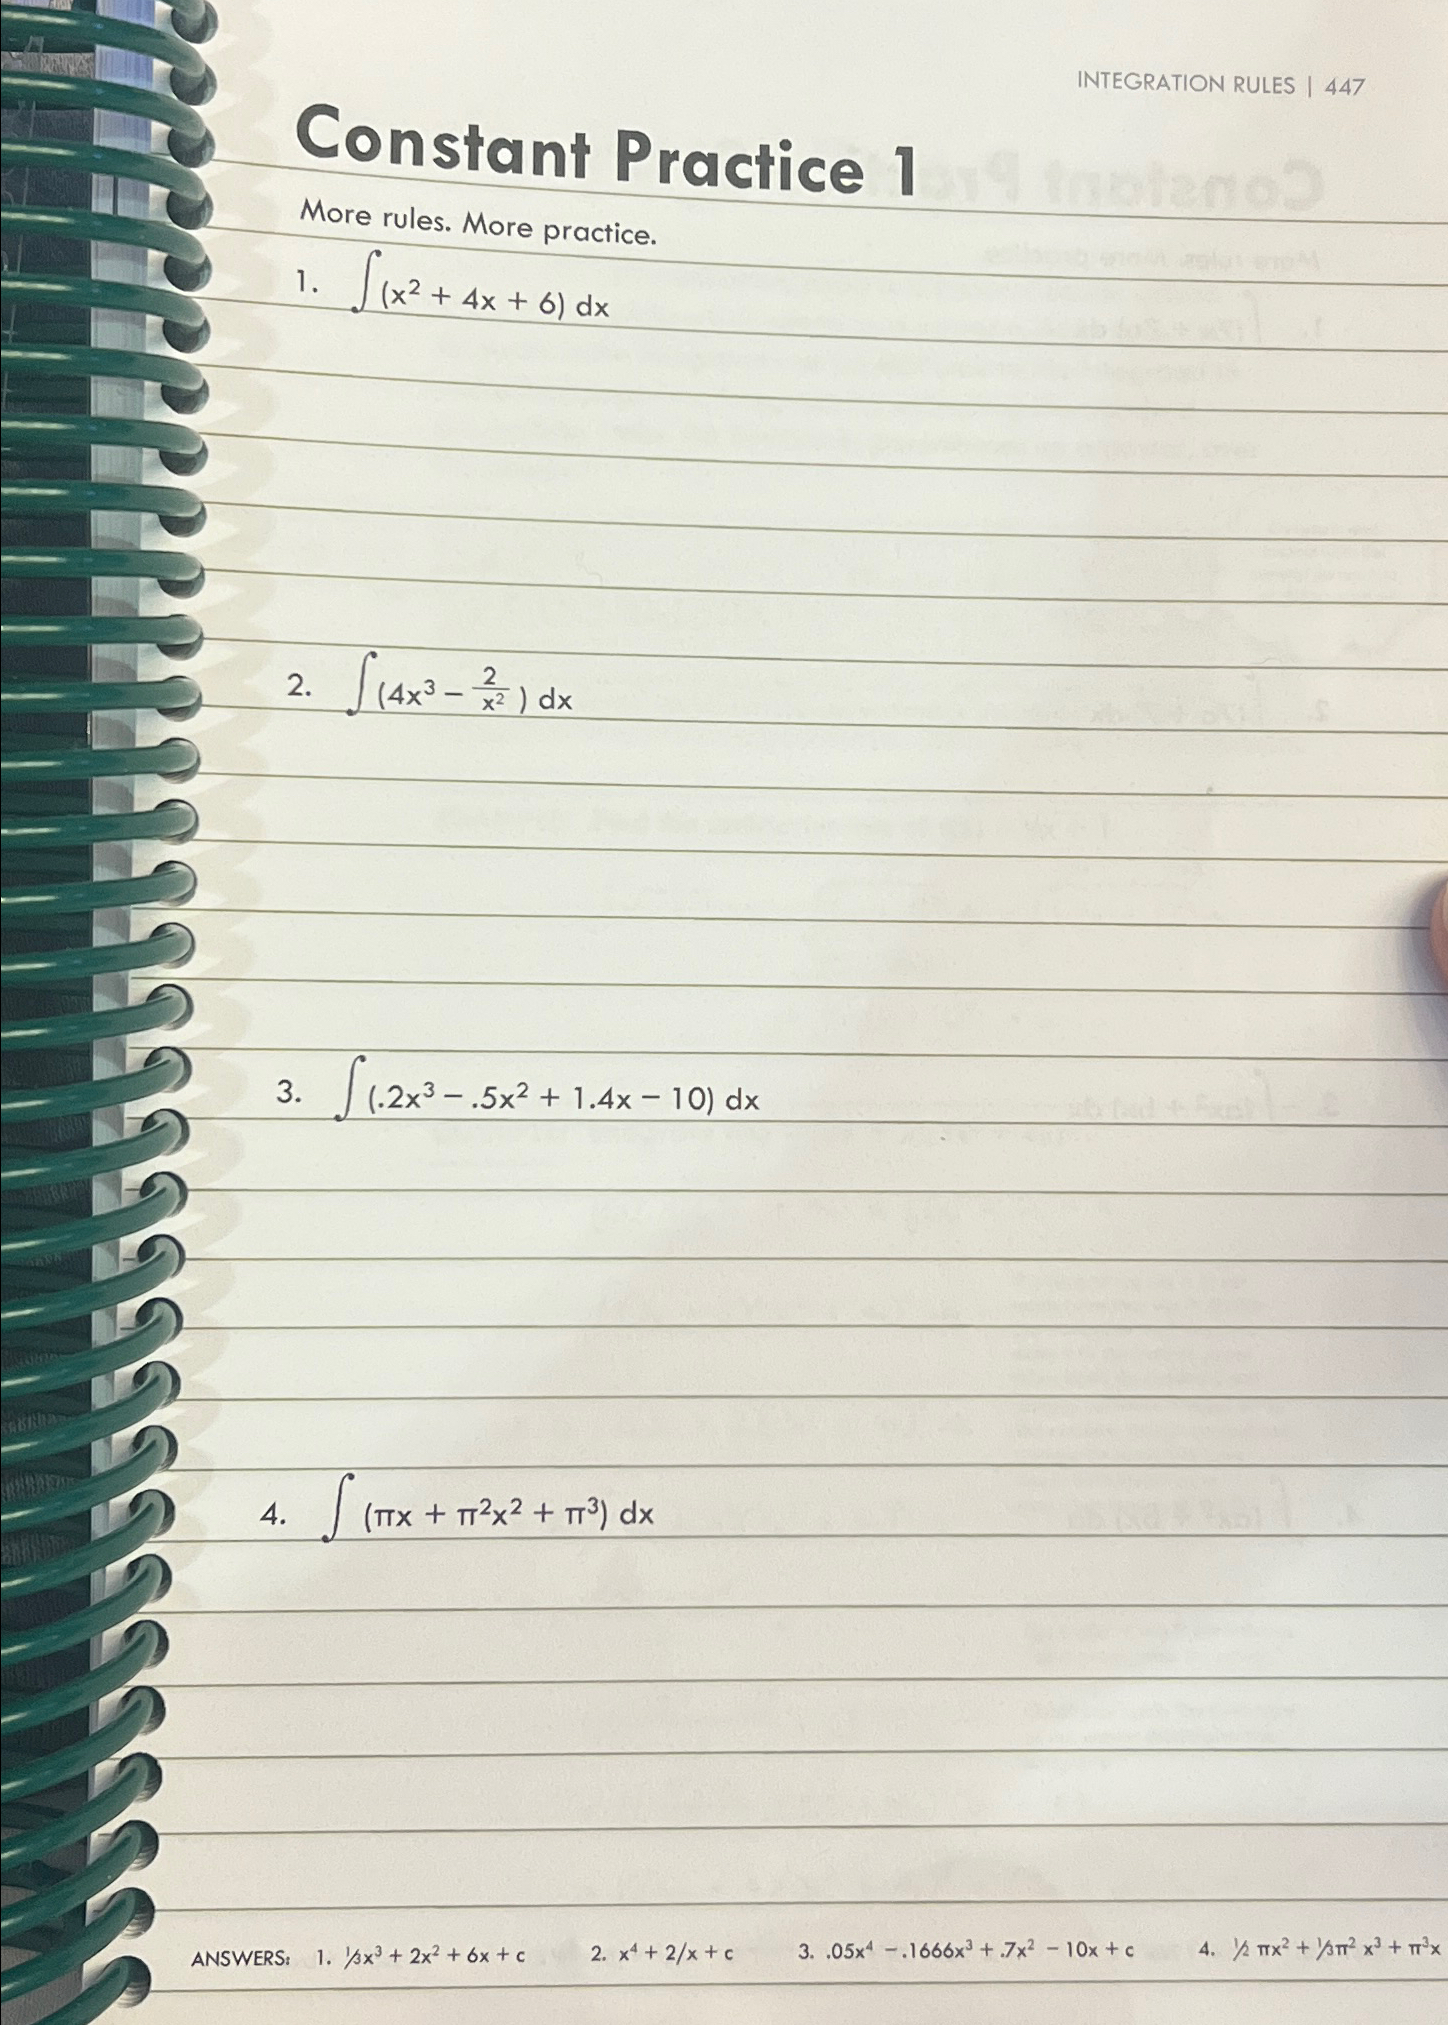 INTEGRATION RULES | 447
Constant Practice 1
More rules. More practice.
1. ∫(x² + 4x + 6) dx
2. ∫(4x³ − 2/x²) dx
3. ∫(.2x³ − .5x² + 1.4x − 10) dx
4. ∫(πx + π²x² + π³) dx
ANSWERS: 1. ⅓x³ + 2x² + 6x + c 2. x⁴ + 2/x + c 3. .05x⁴ − .1666x³ + .7x² − 10x + c 4. ½ πx² + ⅓π² x³ + π³x